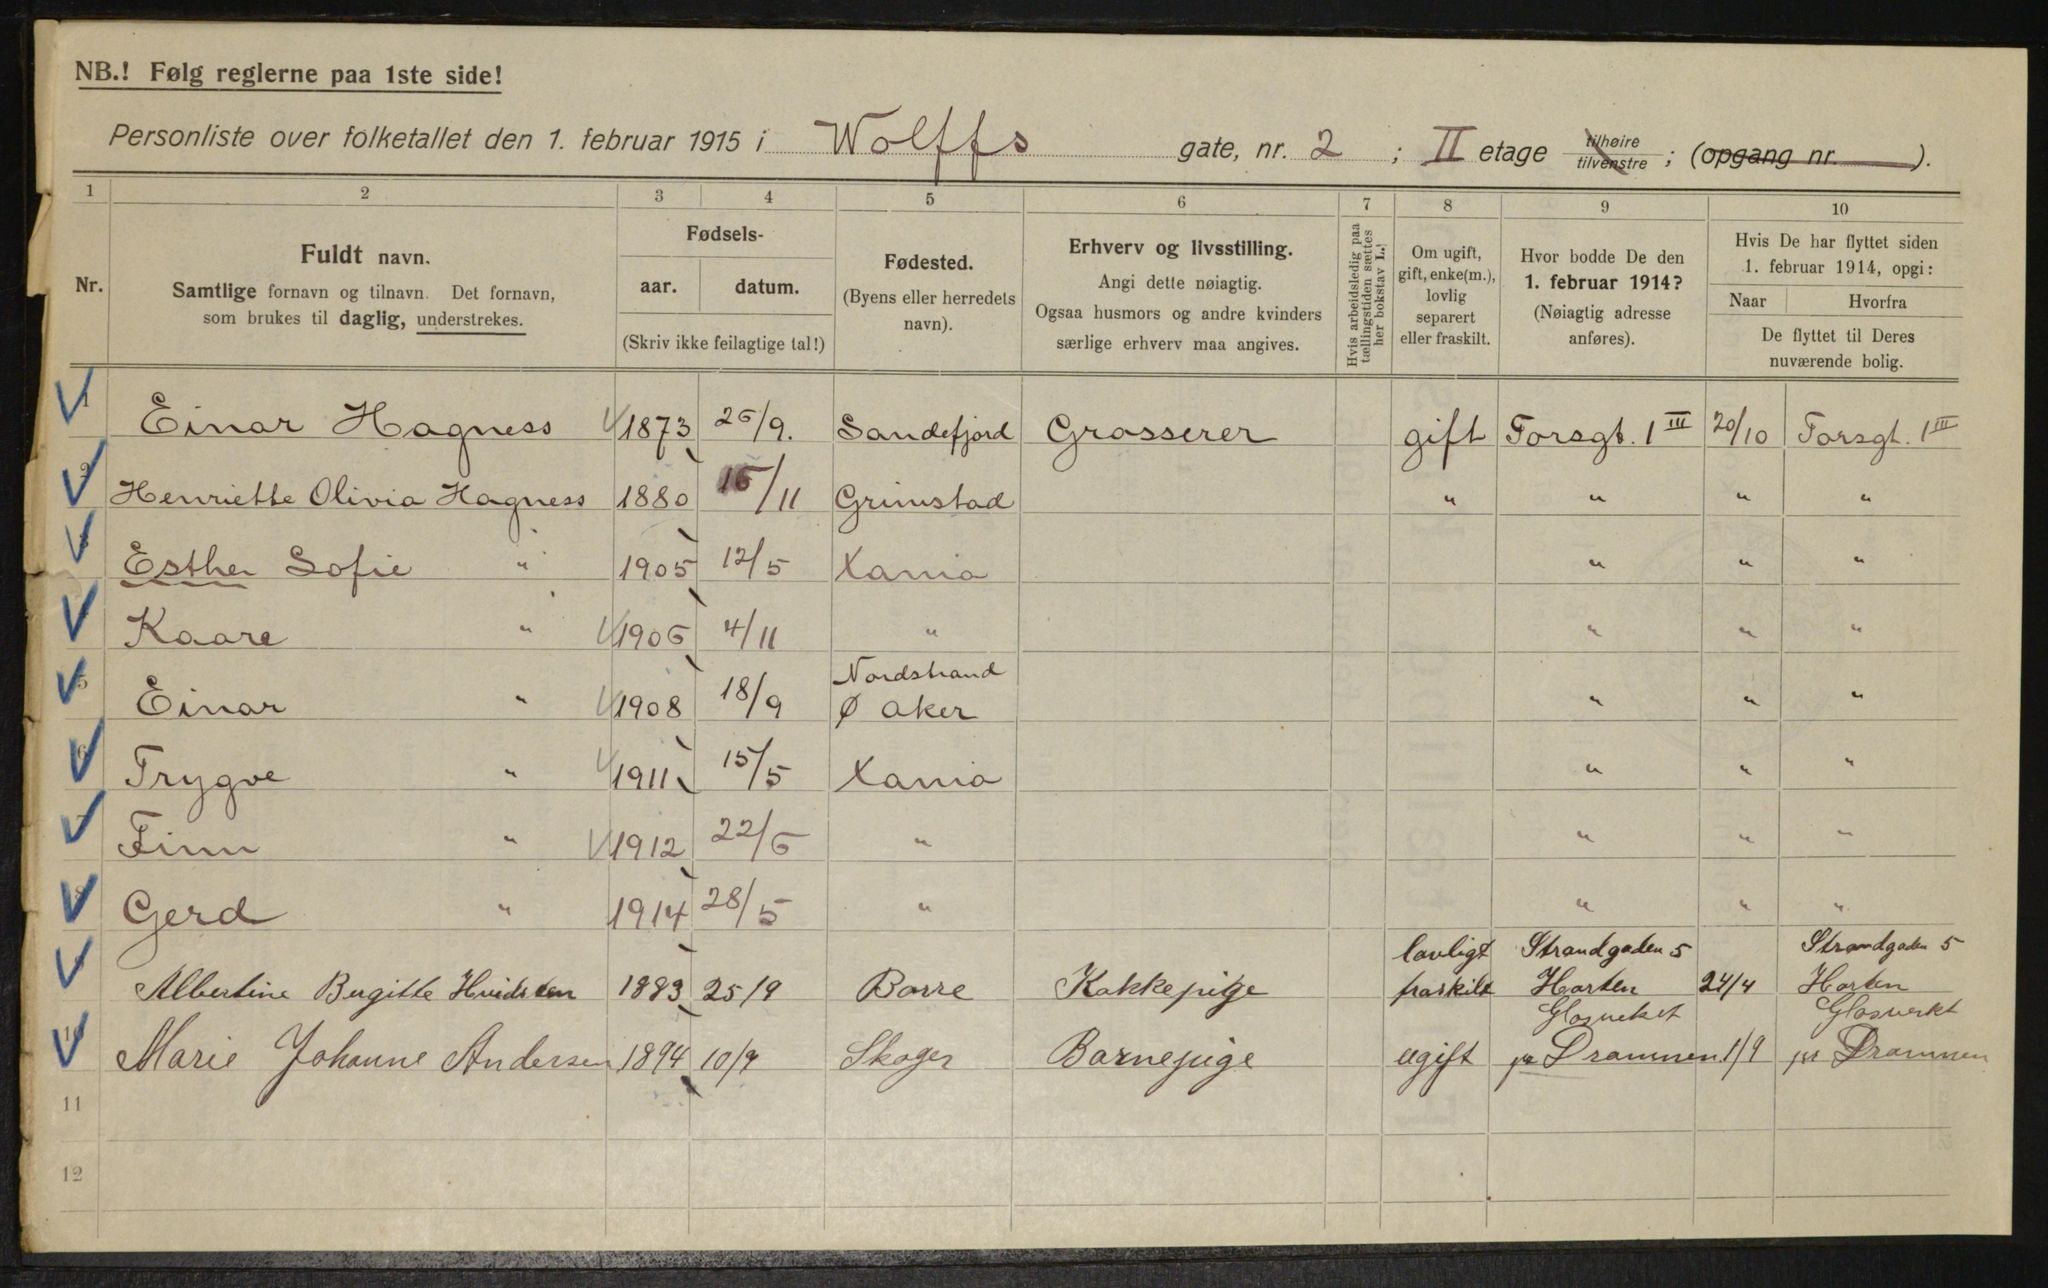 NB.! Følg reglerne paa 1ste side!
Personliste over folketallet den 1. februar 1915 i Wolffs gate, nr. 2 ; II etage tilhøire tilvenstre ; (opgang nr. ).
1 2 3 4 5 6 7 8 9 10
Nr. Fuldt navn. Samtlige fornavn og tilnavn. Det fornavn, som brukes til daglig, understrekes.
Fødsels- aar. datum. (Skriv ikke feilagtige tal!)
Fødested. (Byens eller herredets navn).
Erhverv og livsstilling. Angi dette nøiagtig. Ogsaa husmors og andre kvinders særlige erhverv maa angives.
Hvis arbeidsledig paa tællingstiden sættes her bokstav L.!
Om ugift, gift, enke(m.), lovlig separert eller fraskilt.
Hvor bodde De den 1. februar 1914? (Nøiagtig adresse anføres).
Hvis De har flyttet siden 1. februar 1914, opgi: Naar Hvorfra De flyttet til Deres nuværende bolig.
1 Einar Hagness 1873 26/9. Sandefjord Grosserer gift Forsgt. 1 III 20/10 Forsgt. 1 III
2 Henriette Olivia Hagness 1880 16/11 Grimstad " " " "
3 Esther Sofie " 1905 12/5 Xania " " "
4 Kaare " 1906 4/11 " " " "
5 Einar " 1908 18/9 Nordstrand Ø Aker " " "
6 Trygve " 1911 15/5 Xania " " "
7 Finn " 1912 22/6 " " " "
8 Gerd " 1914 28/5 " " " "
9 Albertine Birgitte Hvidsten 1883 25/9 Borre Kokkepige lovligt fraskilt Strandgaden 5 Horten 24/4 Strandgaden 5 Horten
10 Marie Johanne Andersen 1894 10/9 Skoger Barnepige ugift Glasverket pr Drammen 1/9 Glasverkt pr Drammen
11
12